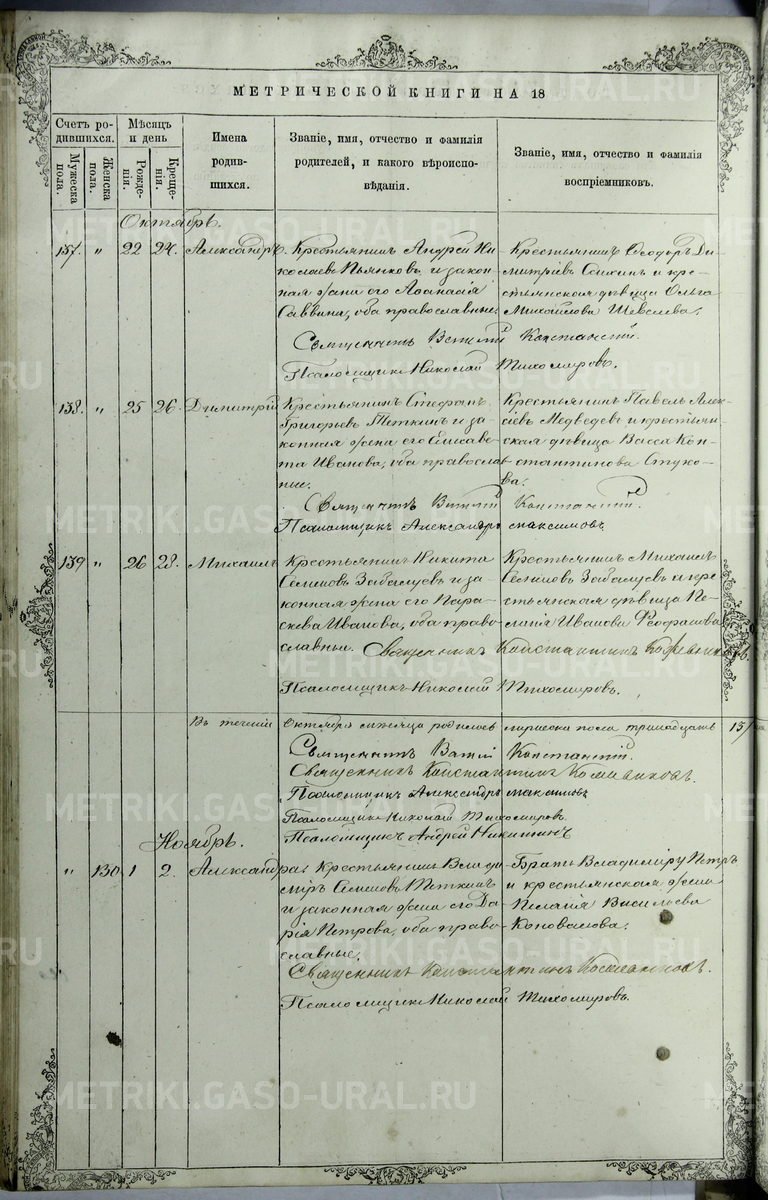 МЕТРИЧЕСКОЙ КНИГИ НА 18
Счетъ ро-
дившихся.
Мужеска
пола.
Женска
пола.
Мѣсяцъ
и день
Рожде-
нія.
Креще-
нія.
Имена
родив-
шихся.
Званіе, имя, отчество и фамилія
родителей, и какого вѣроиспо-
вѣданія.
Званіе, имя, отчество и фамилія
воспріемниковъ.
Октябрь.
137. " 22 24. Александръ.
Крестьянинъ Андрей Ни-
колаевъ Пьянковъ и закон-
ная жена его Аѳанасія
Саввина, оба православные
Крестьянинъ Ѳеодоръ Ди-
митріевъ и кре-
стьянская дѣвица Ольга
Михайлова Шевелева.
Священникъ Константинъ
Псаломщикъ Николай Тихомировъ.
138. " 25 26. Димитрій
Крестьянинъ Стефанъ
Григорьевъ Теткинъ и за-
конная жена его Елисаве-
та Иванова, оба православ-
ные.
Крестьянинъ Павелъ Алек-
сіевъ Медведевъ и крестьян-
ская дѣвица Васса Кон-
стантинова Стуко-
ва.
Священникъ
Псаломщикъ Александръ Максимовъ
139 " 26 28. Михаилъ
Крестьянинъ Никита
Семеновъ Забалуевъ и за-
конная жена его Пара-
скева Иванова, оба право-
славные.
Крестьянинъ Михаилъ
Семеновъ Забалуевъ и кре-
стьянская дѣвица Пе-
лагія Иванова
Священникъ Константинъ
Псаломщикъ Николай Тихомировъ.
Въ теченіи Октября мѣсяца родилось мужеска пола тринадцать
Священникъ
Священникъ Константинъ
Псаломщикъ Александръ Максимовъ
Псаломщикъ Николай Тихомировъ.
Псаломщикъ Андрей Никитинъ
Ноябрь.
" 130 1 2. Александра
Крестьянинъ Влади-
міръ Семеновъ Теткинъ
и законная жена его Да-
рія Петрова, оба право-
славные.
Братъ Владиміру Петръ
и крестьянская жена
Пелагія Васильева
Коновалова.
Священникъ Константинъ
Псаломщикъ Николай Тихомировъ.
METRIKI.GASO-URAL.RU